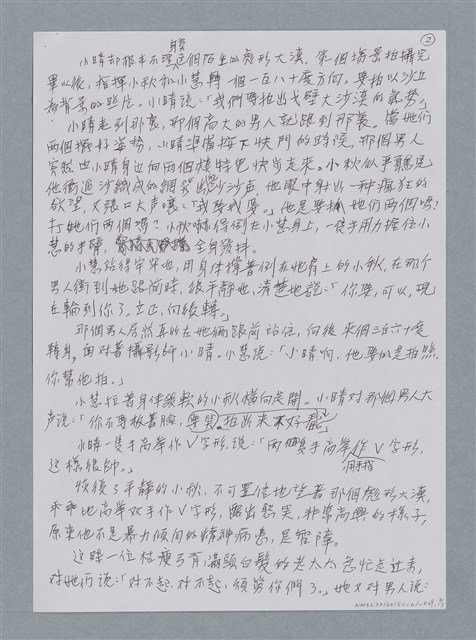 ②
小晴却根本不理這個陌生的彪形大漢,第一個場景拍攝完
畢以後,指揮小秋和小慧轉一個一百八十度方向。要拍以沙丘
為背景的照片。小晴說:「我們要拍出戈壁大沙漠的氣勢。」
小晴走到那裏,那個高大的男人就跟到那裏。當她們
兩個擺好姿勢,小晴準備按下快門的時候,那個男人
突然由小晴身边向兩個模特兒快步走來。小秋似乎聽見
他衝過沙織成的網裂出沙声,他眼中射出一种瘋狂的
欲望,又張口大声嚷:「我要我要。」他是要撕她們兩個嗎?
打她們兩個嗎?小秋嚇得倒在小慧身上,一隻手用力握住小
慧的手臂,全身發抖。
小慧站得牢牢地,用身体撐著倒在她肩上的小秋,在那个
男人衝到她跟前時,很平静地,清楚地說:「你要,可以,現
在輪到你了。立正,向後轉。」
那個男人居然真的在她倆跟前站住,向後來個三百六十度
轉身,面对著攝影師小晴。小慧說:「小晴啊,他要的是拍照,
你幫他拍。」
小慧拉著身体發軟的小秋橫向走開。小晴对那個男人大
声說:「你不要板著臉,拍出來不好看。」
小晴一隻手高舉作V字形,說:「兩隻手高舉作V字形,
用手指
這樣很帥。」
恢復了平静的小秋,不可置信地望著那個彪形大漢,
乖乖地高舉双手作V字形,露出憨笑,非常高興的樣子,
原來他不是暴力傾向的精神病患,是智障。
這時一位枯瘦已有滿頭白髮的老太太急忙走过來,
对她們說:「对不起,对不起,煩勞你們了。」她又对男人說: